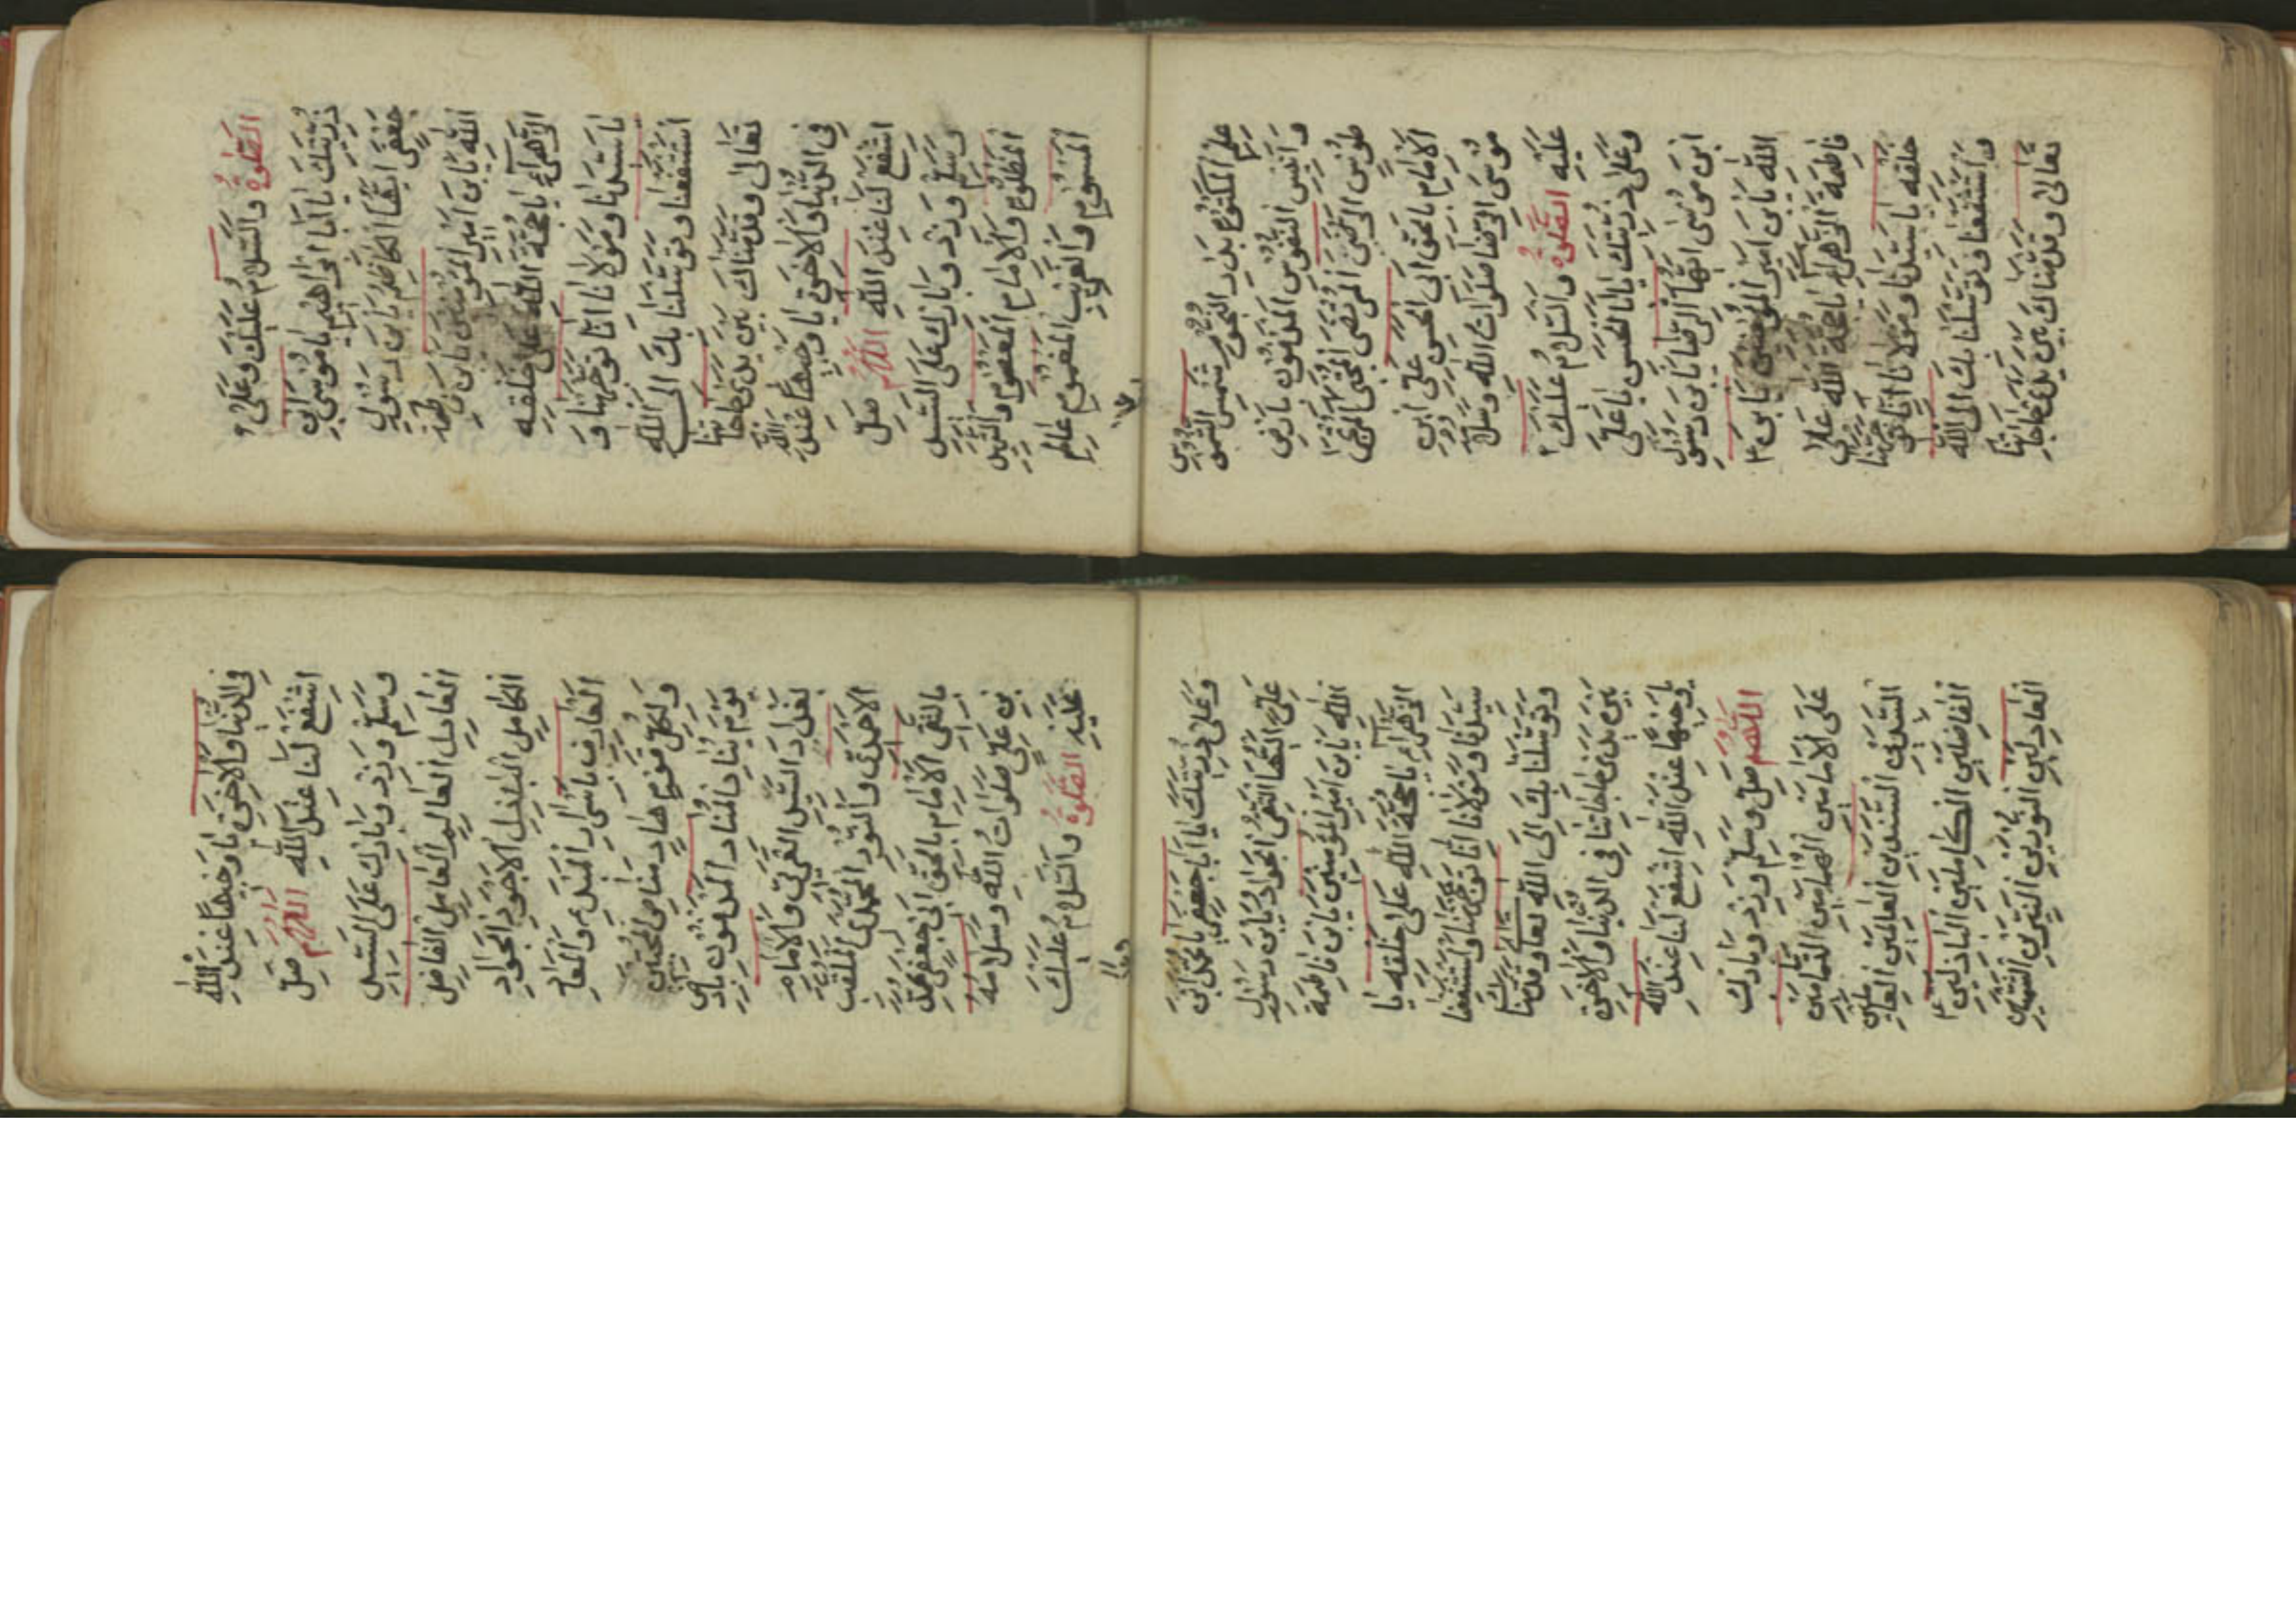 الصلوة والسلام عليك وعلى
ذريتك يا ابا ابراهيم يا موسى ابن
جعفر ايها الكاظم يابن رسول
الله يابن امير المؤمنين يابن فاطمة
الزهراء يا حجة الله على خلقه
يا سيدنا ومولانا انا توجهنا و
استشفعنا وتوسلنا بك الى الله
تعالى وقدمناك بين يدى حاجاتنا
فى الدنيا والاخرة يا وجيها عند الله
اشفع لنا عند الله اللهم صل
وسلم وزد وبارك على السيد
المظلوم والامام المعصوم والشهيد
المسموم والغريب المغموم عالم
علم المكتوم بدر النجوم شمس الشموس
وانيس النفوس المدفون بارض
طوس الرضى المرتضى المجتبى
الامام بالحق ابى الحسن على ابن
موسى الرضا صلوات الله وسلامه
عليه الصلوة والسلام عليك
وعلى ذريتك يا ابا الحسن يا على
ابن موسى ايها الرضا يابن رسول
الله يابن امير المؤمنين يابن
فاطمة الزهراء يا حجة الله على
خلقه يا سيدنا ومولانا انا توجهنا
واستشفعنا وتوسلنا بك الى الله
تعالى وقدمناك بين يدى حاجاتنا
فى الدنيا والاخرة يا وجيها عند الله
اشفع لنا عند الله اللهم صل
وسلم وزد وبارك على السيد
العادل العالم العامل الفاضل
الكامل الباذل الاجود الجواد
العارف باسرار المبدء والمعاد
ولكل قوم هاد مناص المحبين
يوم يناد المناد المدفون بارض
بغداد السيد العربى والامام
الاحمدى والنور المحمدى الملقب
بالتقى الامام بالحق ابى جعفر محمد
بن على صلوات الله وسلامه
عليه الصلوة والسلام عليك
وعلى ذريتك يا ابا جعفر يا محمد ابن
على ايها التقى الجواد يابن رسول
الله يابن امير المؤمنين يابن فاطمة
الزهراء يا حجة الله على خلقه يا
سيدنا ومولانا انا توجهنا واستشفعنا
وتوسلنا بك الى الله تعا وقدمناك
بين يدى حاجاتنا فى الدنيا والاخرة
يا وجيها عند الله اشفع لنا عند الله
اللهم صل وسلم وزد وبارك
على الامامين الهمامين التمامين
السيدين السندين العالمين العاملين
الفاضلين الكاملين الباذلين
العادلين النورين النيرين الشهيدين